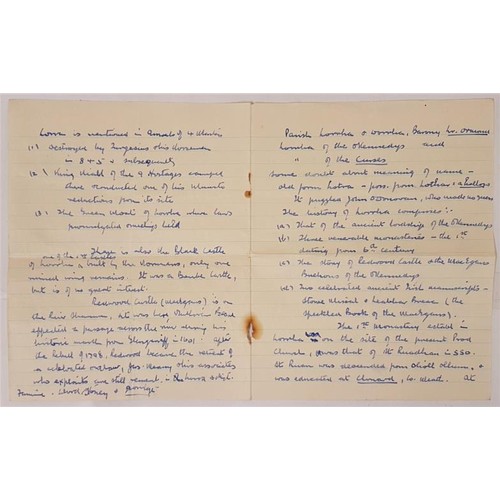 Lorrha is mentioned in Annals of 4 Masters
(1) Destroyed by Turgesius this Norseman
in 845 & subsequently
(2) King Niall of the 9 Hostages
have conducted one of his
from its site
(3) The Queen of Lorrha where laws
promulgated meeting held
There is also the Black Castle
of Lorrha built by the Normans, only one
ruined wing remains. It was a Castle,
but is of no great interest.
Redwood Castle (MacEgans) is on
the Shannon, at was
effected a passage across the river during his
historic march from Glengariff in 1601. After
the Rebel of 1798, Redwood became the retreat of
a celebrated outlaw, & his associates
who exploits are still remembered
Famine, Lord, Stoney &
Parish Lorrha & Dorrha, Barony Lr. Ormond
Lorrha of the O'Kennedys and
" of the
some doubt about meaning of name -
old form Lothra - poss. from Lothar, a
It puzzled John O'Donovan, who made no guess
The history of Lorrha comprises :-
(a) That of the ancient Lordship of the O'Kennedys
(b) Three venerable monasteries - the 1st
dating from 6th century
(c) The story of Redwood Castle & the MacEgans
Brehons of the O'Kennedys
(d) Two celebrated ancient Irish manuscripts -
Stowe Missal & Leabhar Breac (the
Speckled Book of the MacEgans).
The 1st Monastery estabd in
Lorrha was on the site of the present Prod
Church, & was that of St Ruadhan in 550.
St Ruan was descended from Oilioll Olum, &
was educated at Clonard, Co. Meath. At